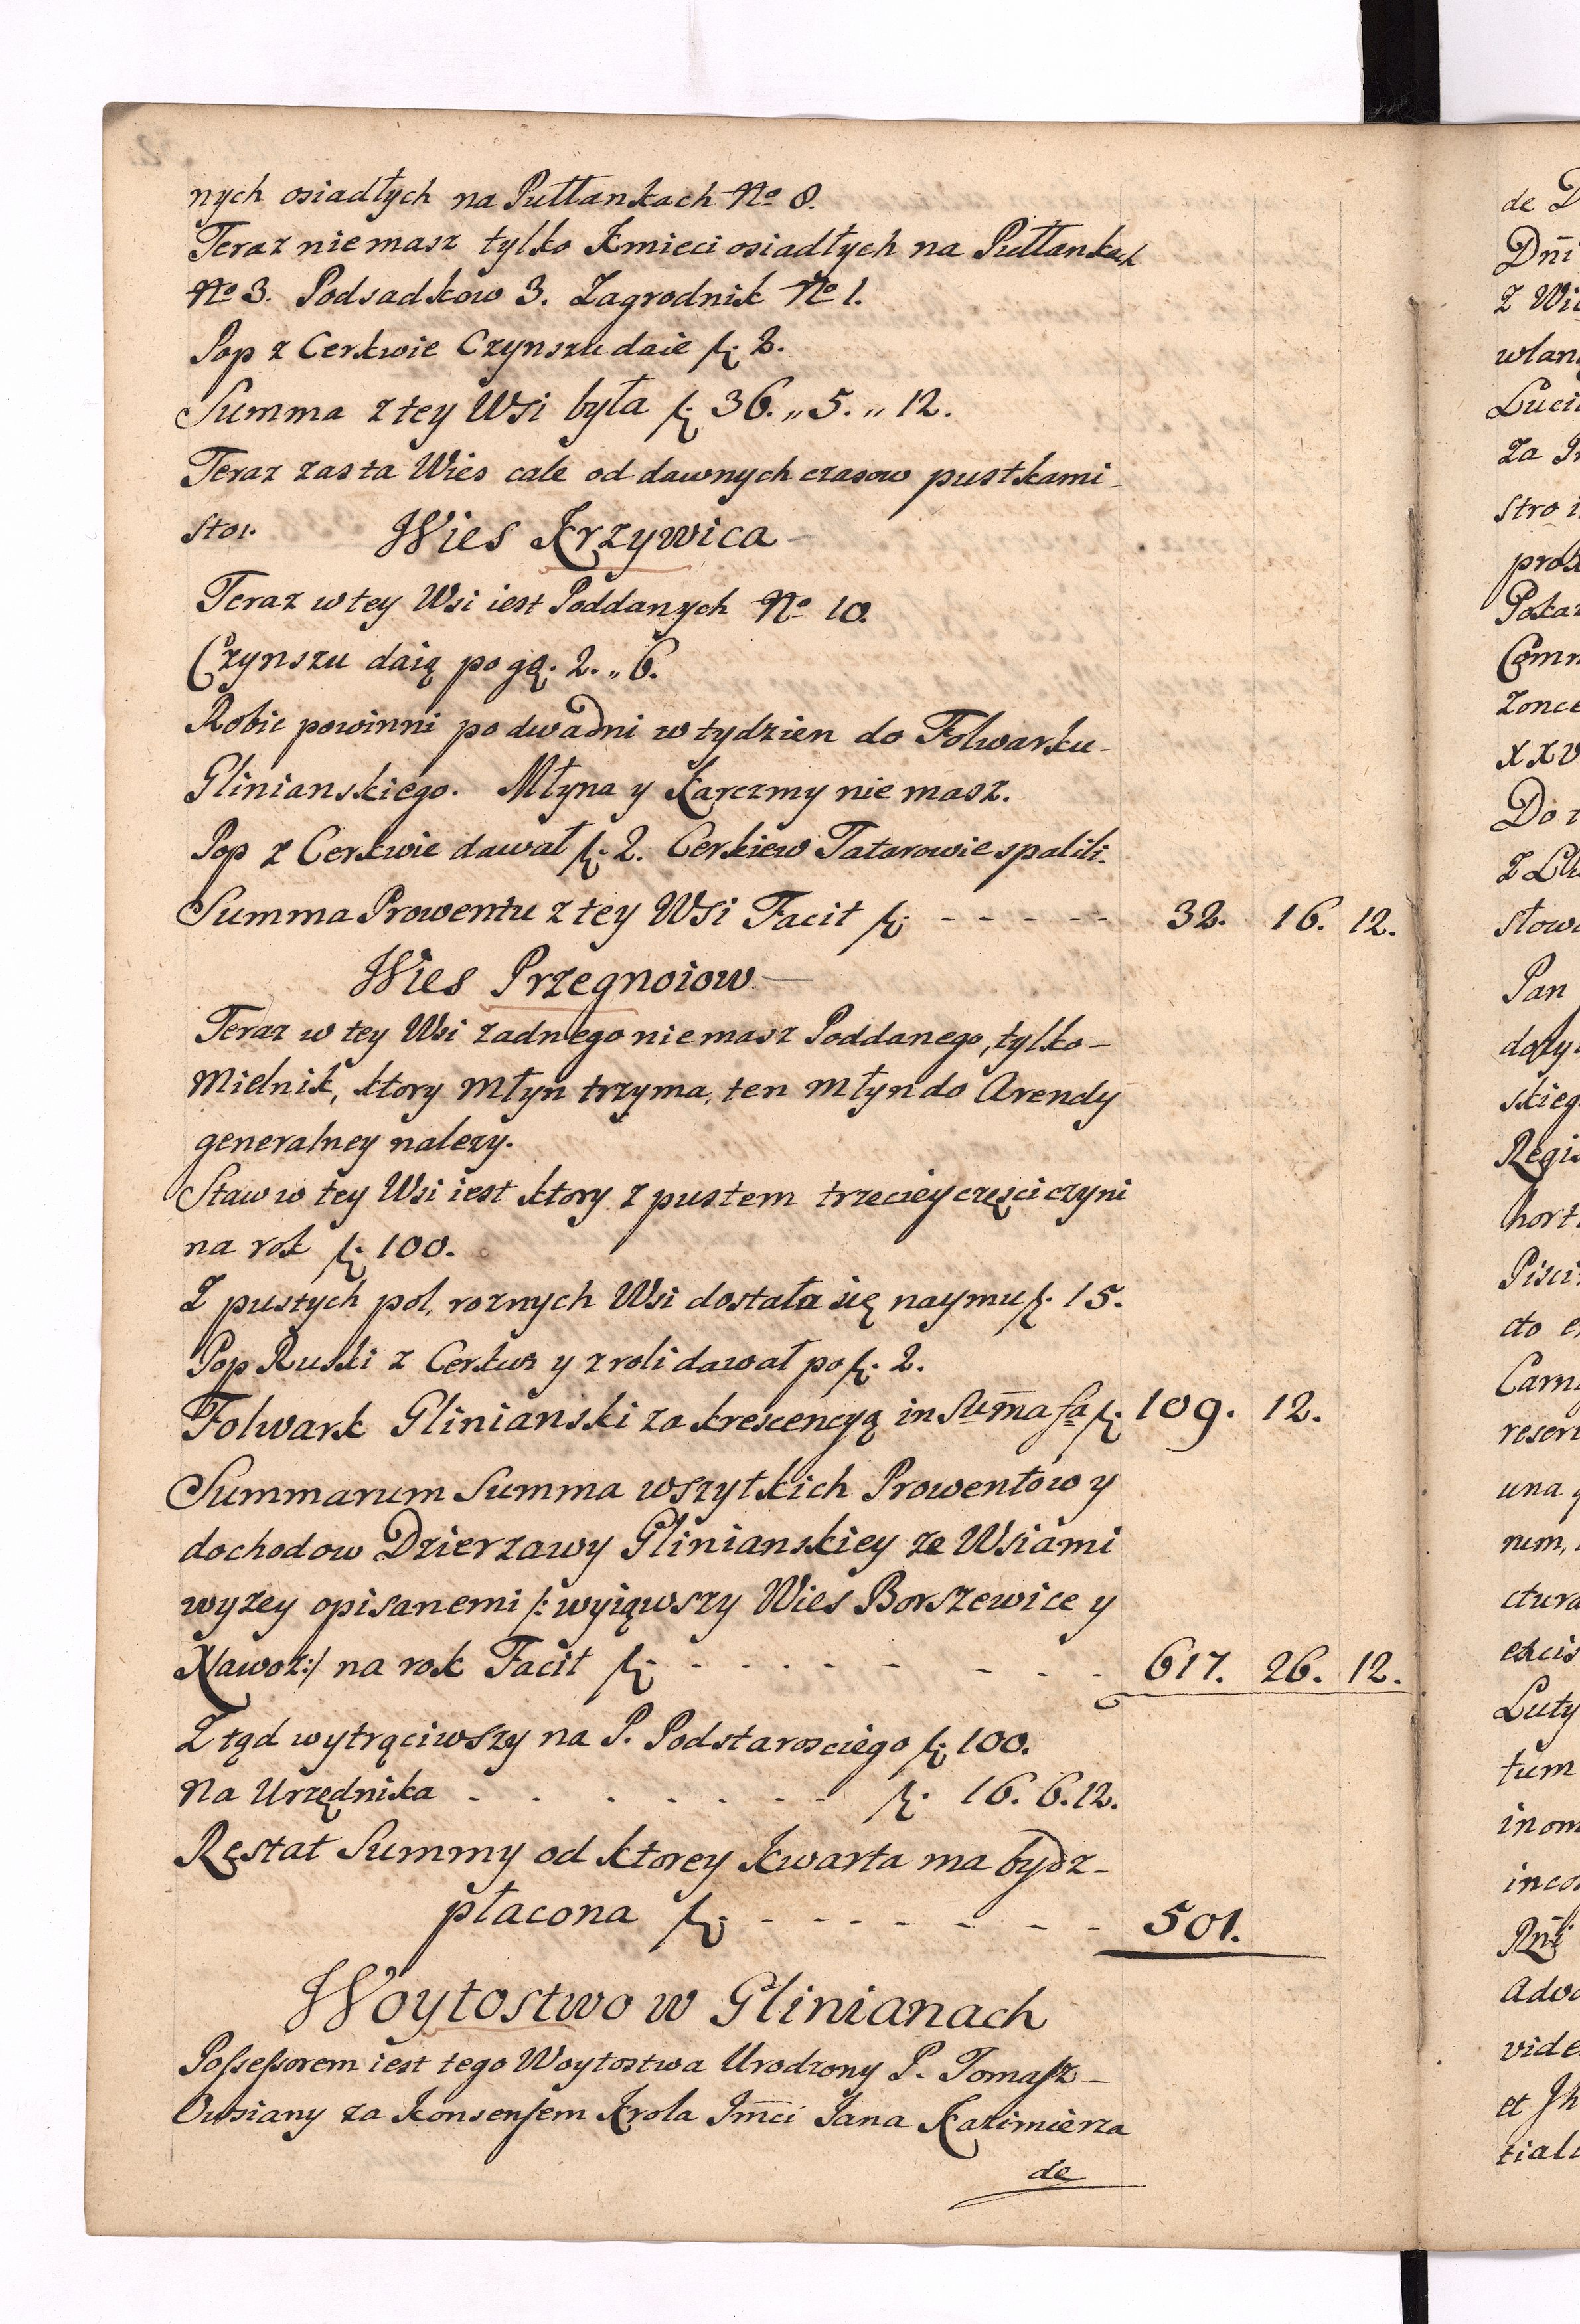 nych osiadłych na Pułłankach No 8.
Teraz nie masz tylko Kmieci osiadłych na Pułłankach
No 3. Podsadkow 3. Zagrodnik No 1.
Pop z Cerkwie Czynszu daie f: 2.
Summa z tey Wsi była f: 36. „ 5. „ 12.
Teraz zas ta Wies cale od dawnych czasow pustkami
stoi. Wies Krzywica
Teraz w tey Wsi iest Poddanych No 10.
Czynszu daią po gą. 2. „ 6.
Robic powinni po dwa dni w tydzien do Folwarku
Glinianskiego. Młyna y Karczmy nie masz.
Pop z Cerkwie dawał f: 2. Cerkiew Tatarowie spalili.
Summa Prowentu z tey Wsi Facit f: - - - - - 32. 16. 12.
Wies Przegnoiow
Teraz w tey Wsi zadnego nie masz Poddanego, tylko
Mielnik, ktory Młyn trzyma, ten Młyn do Arendy
generalney nalezy.
Staw w tey Wsi iest ktory z pustem trzeciey częsci czyni
na rok f: 100.
Z pustych pol, roznych Wsi dostała się naymu f: 15.
Pop Ruski z Cerkwi y z roli dawał po f: 2.
Folwark Glinianski za krescencyą in Sum̄a fa f: 109. 12.
Summarum Summa wszytkich Prowentow y
dochodow Dzierzawy Glinianskiey ze Wsiami
wyzey opisanemi /: wyiąwszy Wies Borszewice y
Nawoz :/ na rok Facit f: - - - - - - - - 617. 26. 12.
Z tąd wytrąciwszy na P. Podstarosciego f: 100.
Na Urzędnika - - - - - - - f: 16. 6. 12.
Ręstat Summy od ktorey Kwarta ma bydz
płacona f: - - - - - - - 501.
Woytostwo w Glinianach
Possessorem iest tego Woytostwa Urodzony P. Tomasz
Owsiany za Konsensem Krola Jm̄ci Jana Kazimierza
de